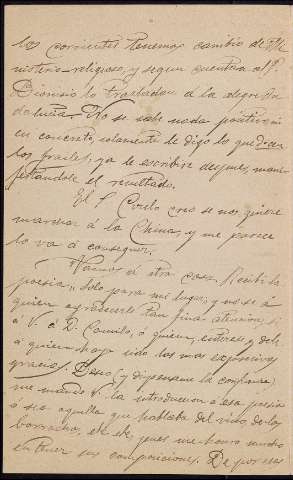 los corrientes tenemos cambio de Mi-
nisterio religioso, y segun cuentan al P.
Dionisio le trasladan a la alegre An-
dalucia. No se sabe nada positivo ni
en concreto, solamente le digo lo que dicen
los frailes, ya le escribiré despues, mani-
festandole el resultado.
El P. Cuelo creo se nos quiere
marchar á la China, y me parece
lo va á conseguir.
Vamos á otra cosa. Recibi la
poesia, solo para mi lugar, y no se á
quien agradecerle tan fina atencion, si
á V. á D. Camilo, á quien, entrego y doy
á quien haya sido las mas expresivas
gracias. Deseo (y dispenseme la confianza)
me mande V. la introduccion á esa poesia
ó sea aquella que hablaba del vino, de los
borrachos, etc. etc, pues me honro mucho
en tener sus composiciones. De por esas